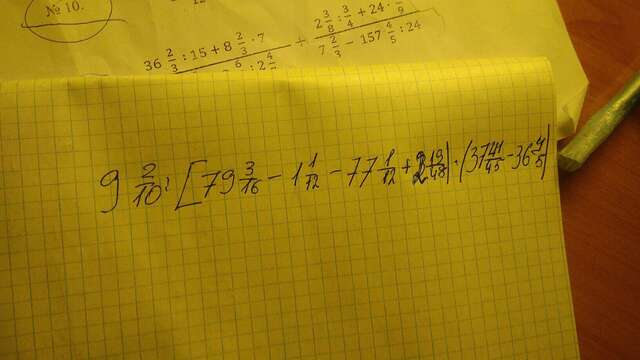 № 10.
36 2/3 : 15 + 8 2/3 · 7
2 3/8 : 3/4 + 24 ·
7 2/3 − 157 4/5 : 24
9 2/10 : [79 3/16 − 1 1/12 − 77 1/12 + 2 19/48] · (37 41/45 − 36 4/5)